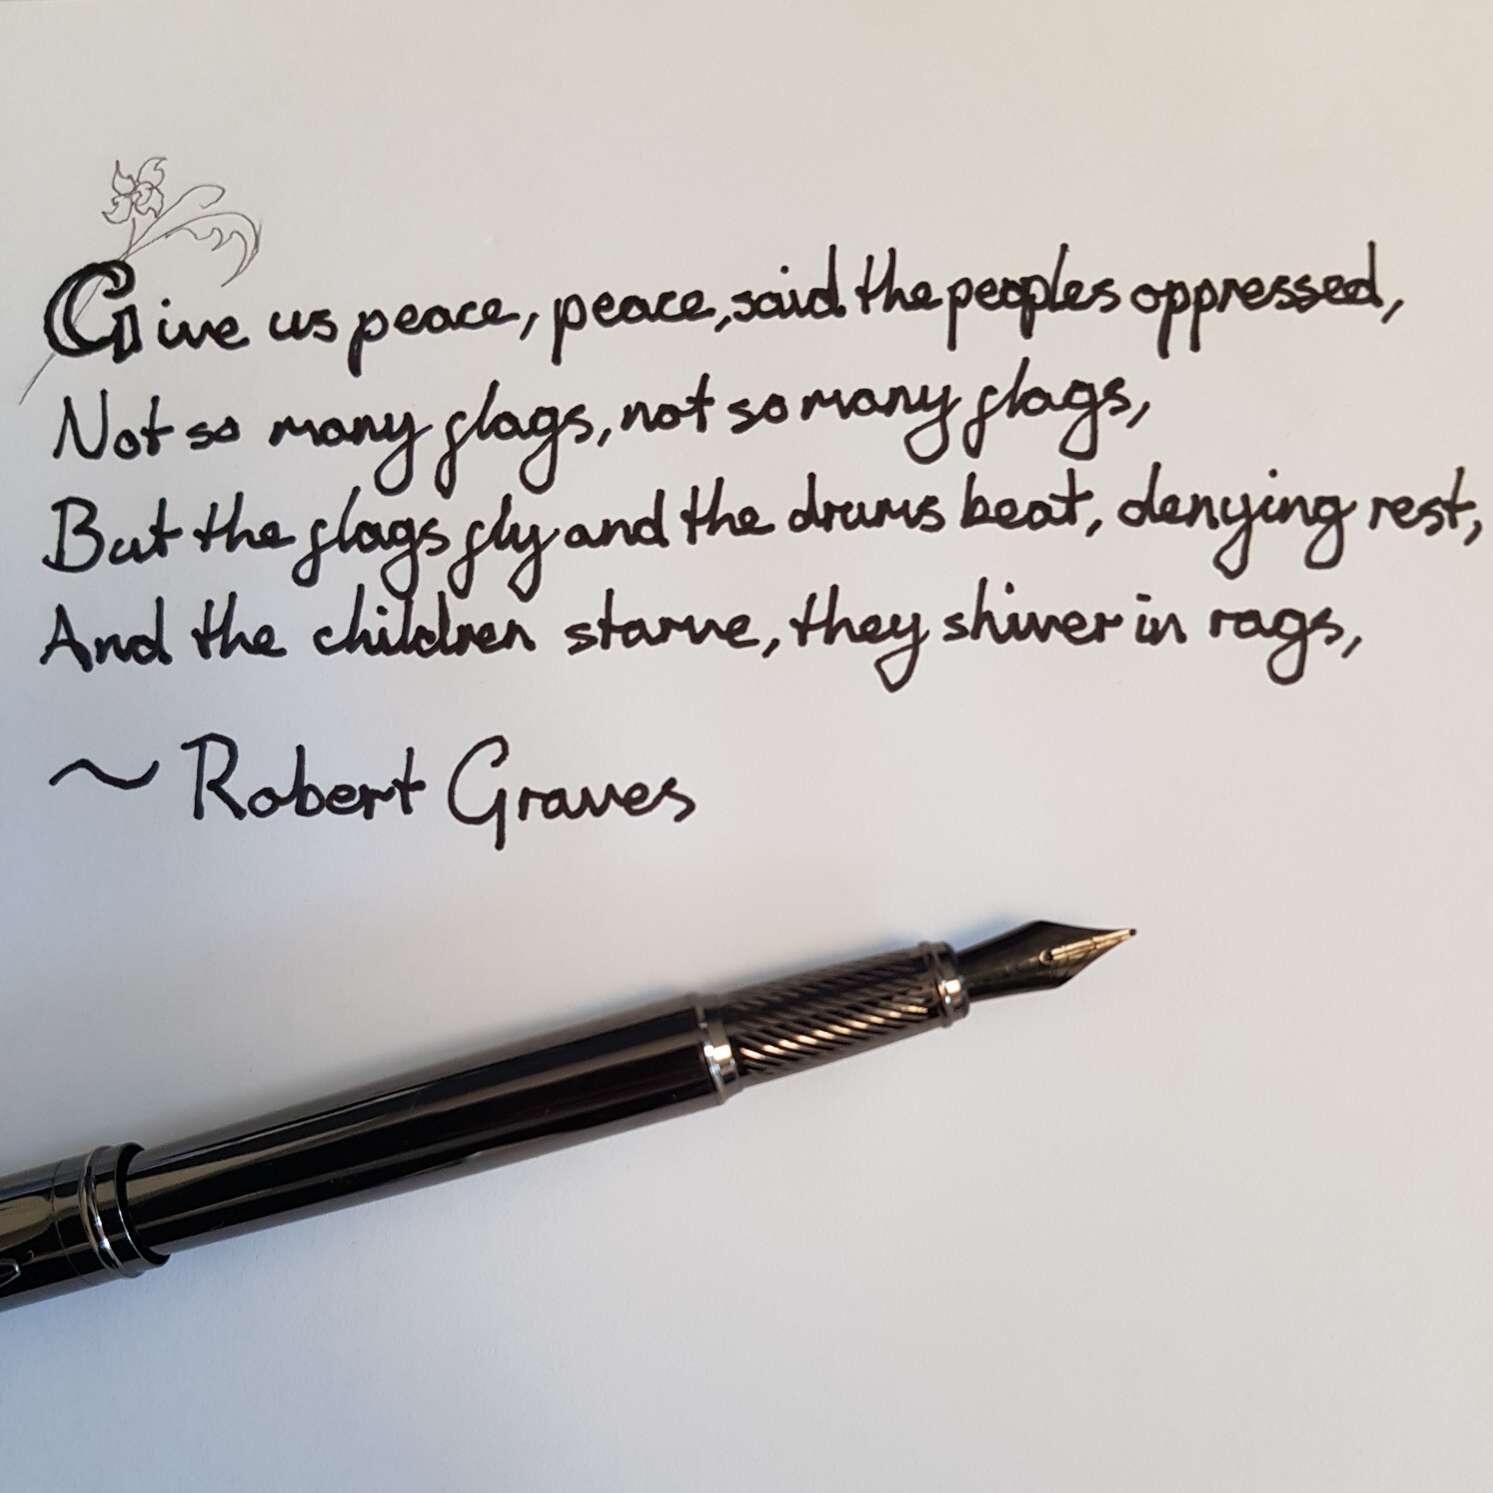 Give us peace, peace, said the peoples oppressed,
Not so many flags, not so many flags,
But the flags fly and the drums beat, denying rest,
And the children starve, they shiver in rags,
~ Robert Graves